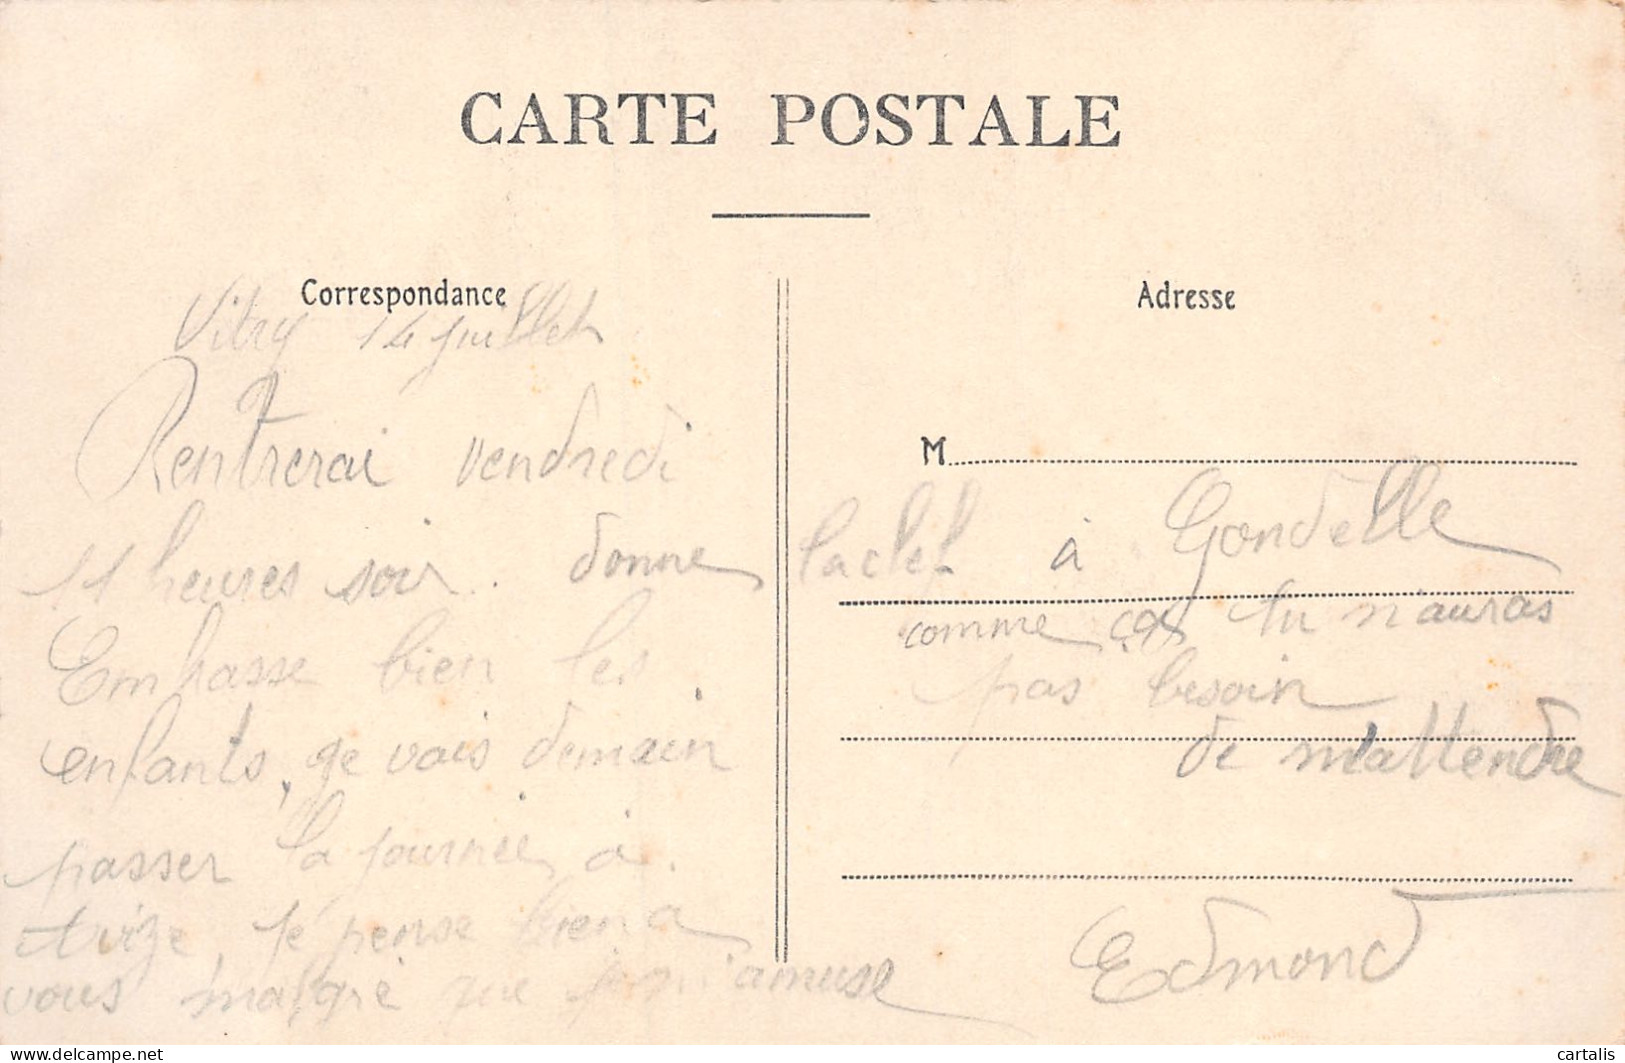 CARTE POSTALE
Correspondance
Vitry 14 juillet
Rentrerai vendredi
11 heures soir. donne
Embrasse bien les
enfants, je vais demain
passer la journée à
je pense bien a
vous malgré que je m'amuse
Adresse
M
la clef à Gondelle
comme ça tu n'auras
pas besoin
de m'attendre
Edmond
delcampe.net
cartalis